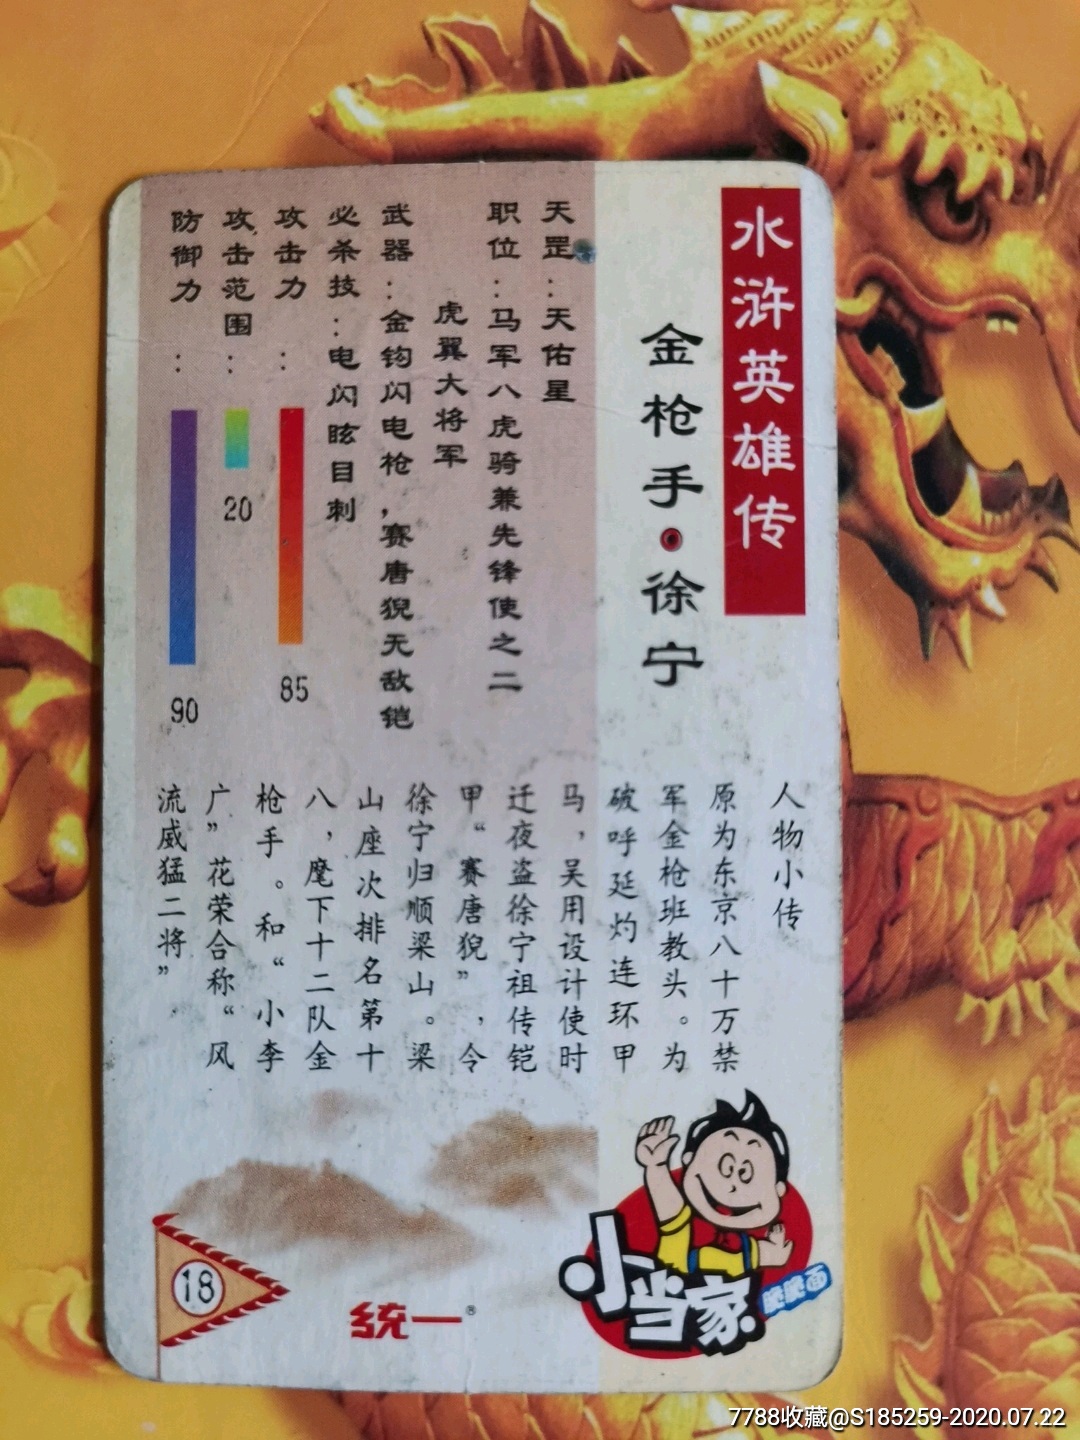 水浒英雄传
金枪手·徐宁
天罡：天佑星
职位：马军八虎骑兼先锋使之二
虎翼大将军
武器：金钩闪电枪，赛唐猊无敌铠
必杀技：电闪眩目刺
攻击力：
85
攻击范围：
20
防御力：
90
人物小传
原为东京八十万禁
军金枪班教头。为
破呼延灼连环甲
马，吴用设计使时
迁夜盗徐宁祖传铠
甲“赛唐猊”，令
徐宁归顺梁山。梁
山座次排名第十
八，麾下十二队金
枪手。和“小李
广”花荣合称“风
流威猛二将”
18
统一®
小当家
脆脆面
7788收藏@S185259-2020.07.22